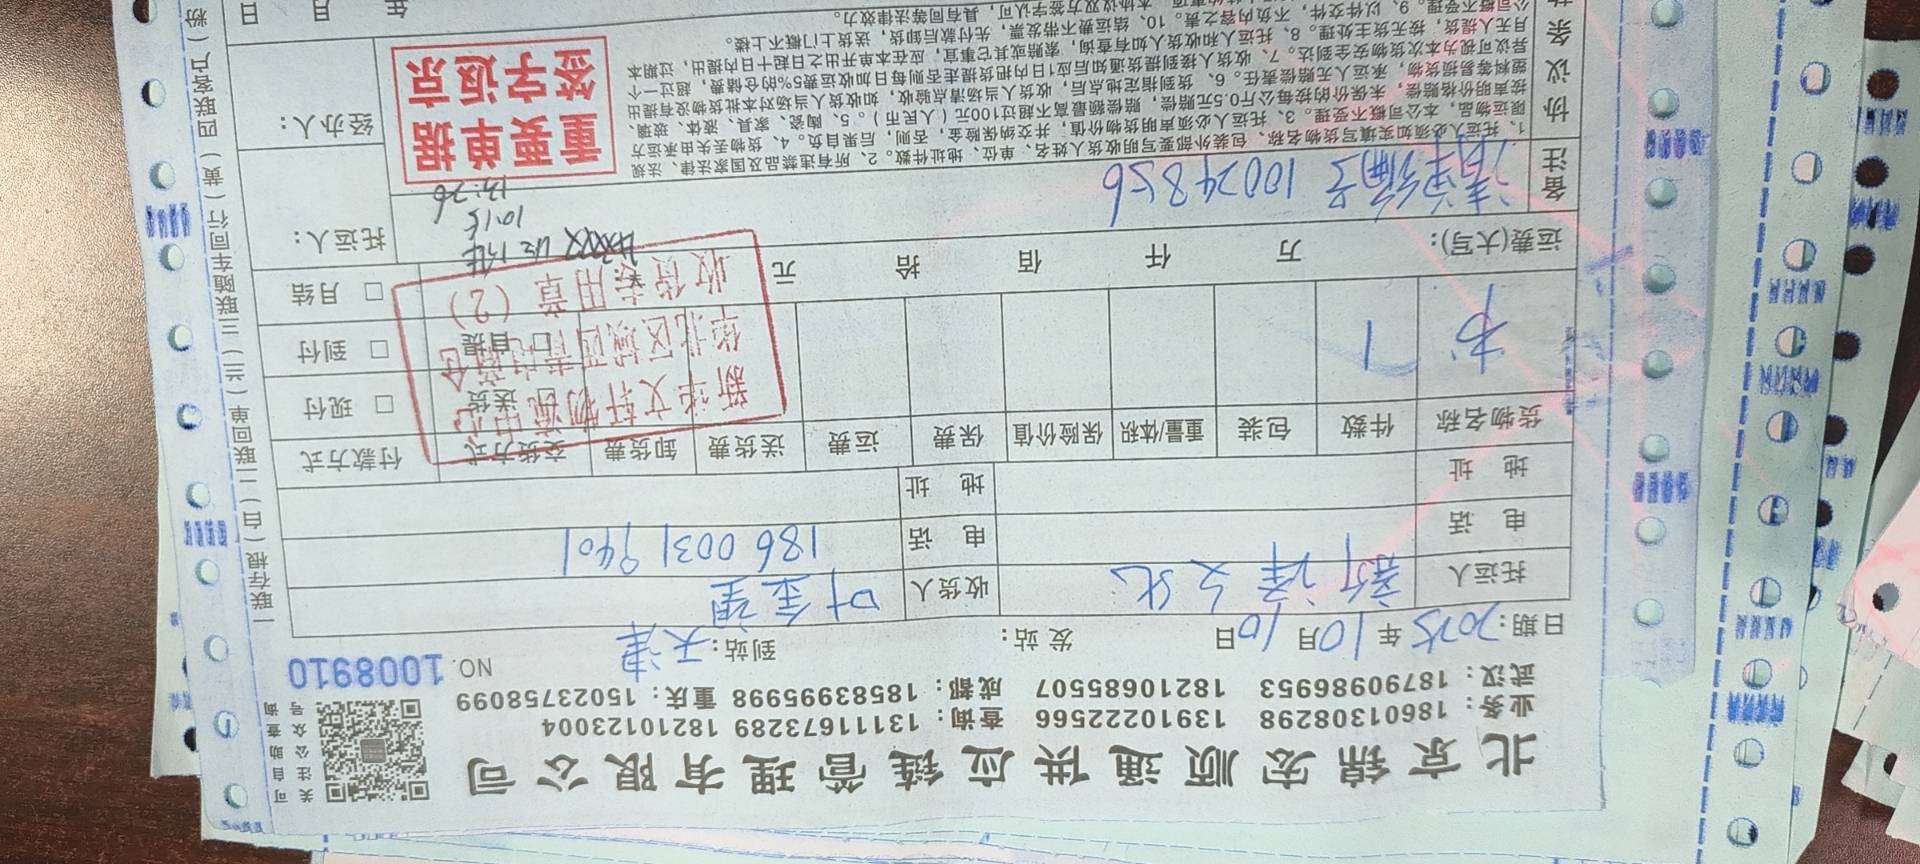 北京锦宏顺通供应链管理有限公司
业务：18601308298 13910222566 查询：13111673289 18210123004
武汉：18790986953 18210685507 成都：18583995998 重庆：15023758099
关注公众号
可自助查询
NO. 1008910
日期：2025年10月10日 发站： 到站：天津
托运人 新泽文化 收货人 叶金望
电 话 电 话 186 0031 9401
地 址 地 址
货物名称 件数 包装 重量/体积 保险价值 保费 运费 送货费 卸货费 交货方式 付款方式
书 1 □ 送货 □ 现付
□ 自提 □ 到付
□ 月结
运费(大写)： 万 仟 佰 拾 元
备注 清单编号 10024856
托运人：
经办人：
年 月 日
新华文轩物流中心
华北区域西南内商仓
收货专用章（2）
10.15
13:26
重要单据
签字返京
协议条
1、托运人必须如实填写货物名称、包装外箱要写明收货人姓名、单位、地址件数。2、所有违禁品及国家法律、法规
限运物品，本公司概不受理。3、托运人必须声明货物价值，并交纳保险金，否则，后果自负。4、货物丢失由承运方
按声明价格赔偿，未保价的按每公斤0.5元赔偿，赔偿额最高不超过100元（人民币）。5、陶瓷、家具、液体、玻璃、
塑料等易损货物，承运人无赔偿责任。6、货到指定地点后，收货人当场清点验收，如收货人当场对本批货物没有提出
异议可视为本次货物安全到达。7、收货人接到提货通知后应1日内把货提走否则每日加收运费5%的仓储费，超过一个
月无人提货，按无货主处理。8、托运人和收货人如有查询，索赔或其它事宜，应在本单开出之日起十日内提出，过期本
公司概不受理。9、以件交件，不负内容之责。10、结运费不带发票，先付款后卸货，送货上门概不上楼。
本协议双方签字认可，具有同等法律效力。
一联存根（白）二联回单（兰）三联随车同行（黄）四联客户（粉